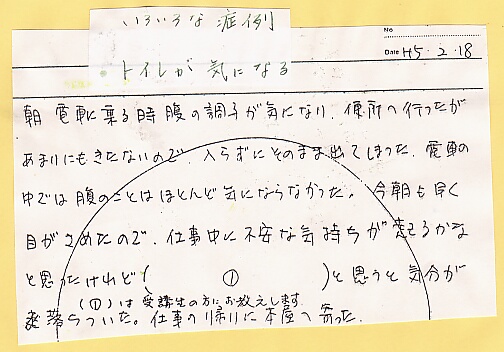 いろいろな症例
・トイレが気になる
No
Date H5・2・18
朝電車に乗る時腹の調子が気になり、便所へ行ったが
あまりにもきたないので、入らずにそのまま出てしまった。電車の
中では腹のことはほとんど気にならなかった。今朝も早く
目がさめたので、仕事中に不安な気持ちが起るかな
と思ったけれど( ① )と思うと気分が
(①)は受講生の方にお教えします.
落らついた。仕事の帰りに本屋へ寄った.